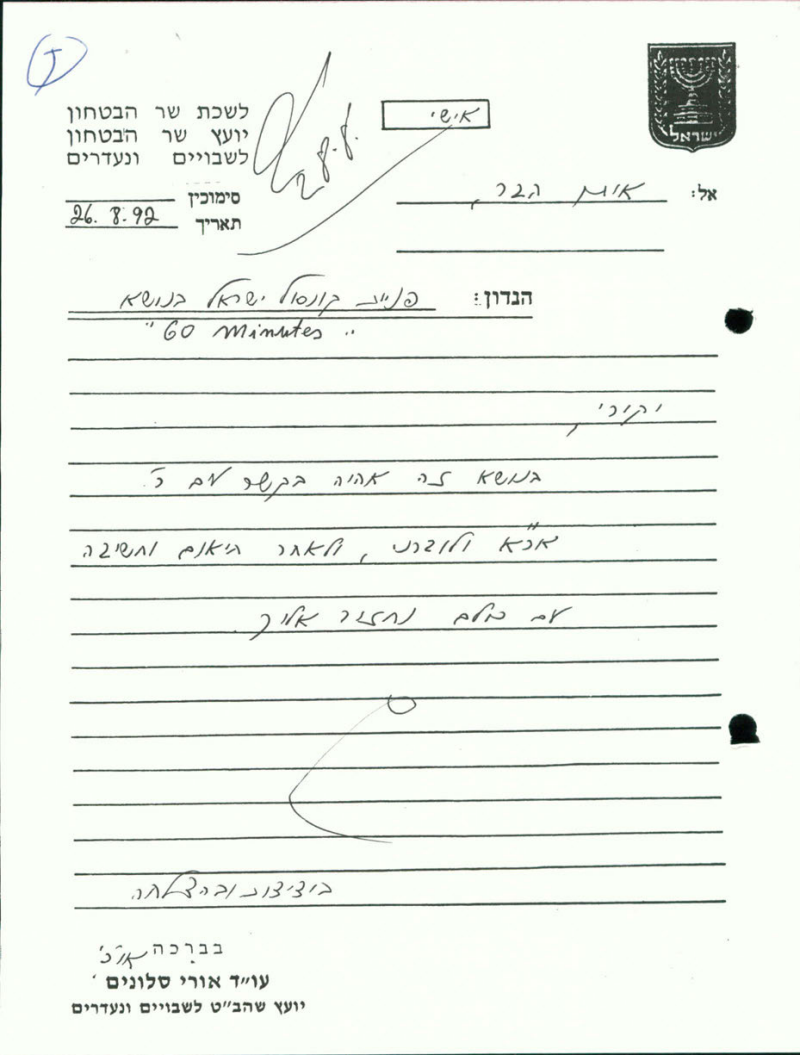 ישראל
לשכת שר הבטחון
יועץ שר הבטחון
לשבויים ונעדרים
אישי
28.8.
אל: איתן הבר,
סימוכין
תאריך 26.8.92
הנדון: פניית קונסול ישראל בנושא
"60 Minutes"
יקירי,
בנושא זה אהיה בקשר עם
ולוברני, ולאחר תיאום וחשיבה
עם כולם נחזור אליך.
בידידות ובהצלחה
בברכה אורי
עו"ד אורי סלונים
יועץ שהב"ט לשבויים ונעדרים